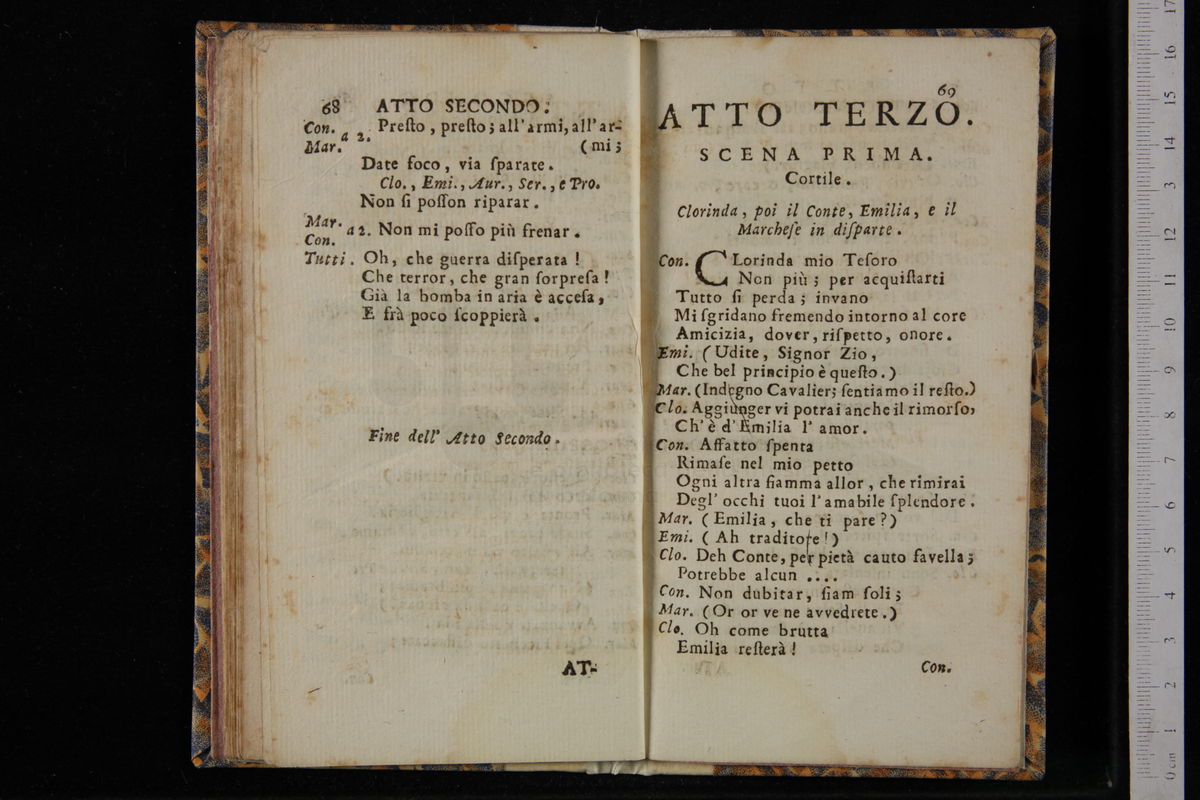 68 ATTO SECONDO.
Con. a 2. Preſto, preſto; all'armi, all'ar-
Mar. (mi;
Date foco, via ſparate.
Clo., Emi., Aur., Ser., e Pro.
Non ſi poſſon riparar.
Mar. a 2. Non mi poſſo più frenar.
Con.
Tutti. Oh, che guerra diſperata!
Che terror, che gran ſorpreſa!
Già la bomba in aria è acceſa,
E frà poco ſcoppierà.
Fine dell' Atto Secondo.
AT-
69
ATTO TERZO.
SCENA PRIMA.
Cortile.
Clorinda, poi il Conte, Emilia, e il
Marcheſe in diſparte.
Con. CLorinda mio Teſoro
Non più; per acquiſtarti
Tutto ſi perda; invano
Mi ſgridano fremendo intorno al core
Amicizia, dover, riſpetto, onore.
Emi. (Udite, Signor Zio,
Che bel principio è queſto.)
Mar. (Indegno Cavalier; ſentiamo il reſto.)
Clo. Aggiunger vi potrai anche il rimorſo,
Ch' è d' Emilia l' amor.
Con. Affatto ſpenta
Rimaſe nel mio petto
Ogni altra fiamma allor, che rimirai
Degl' occhi tuoi l'amabile ſplendore.
Mar. (Emilia, che ti pare?)
Emi. (Ah traditore!)
Clo. Deh Conte, per pietà cauto favella;
Potrebbe alcun ....
Con. Non dubitar, ſiam ſoli;
Mar. (Or or ve ne avvedrete.)
Clo. Oh come brutta
Emilia reſterà!
Con.
0 cm 1 2 3 4 5 6 7 8 9 10 11 12 13 14 15 16 17